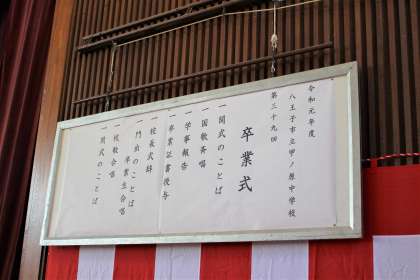 令和元年度
八王子市立甲ノ原中学校
第三十九回
卒業式
一開式のことば
一国歌斉唱
一学事報告
一卒業証書授与
一校長式辞
一門出のことば
卒業生合唱
一校歌合唱
一閉式のことば